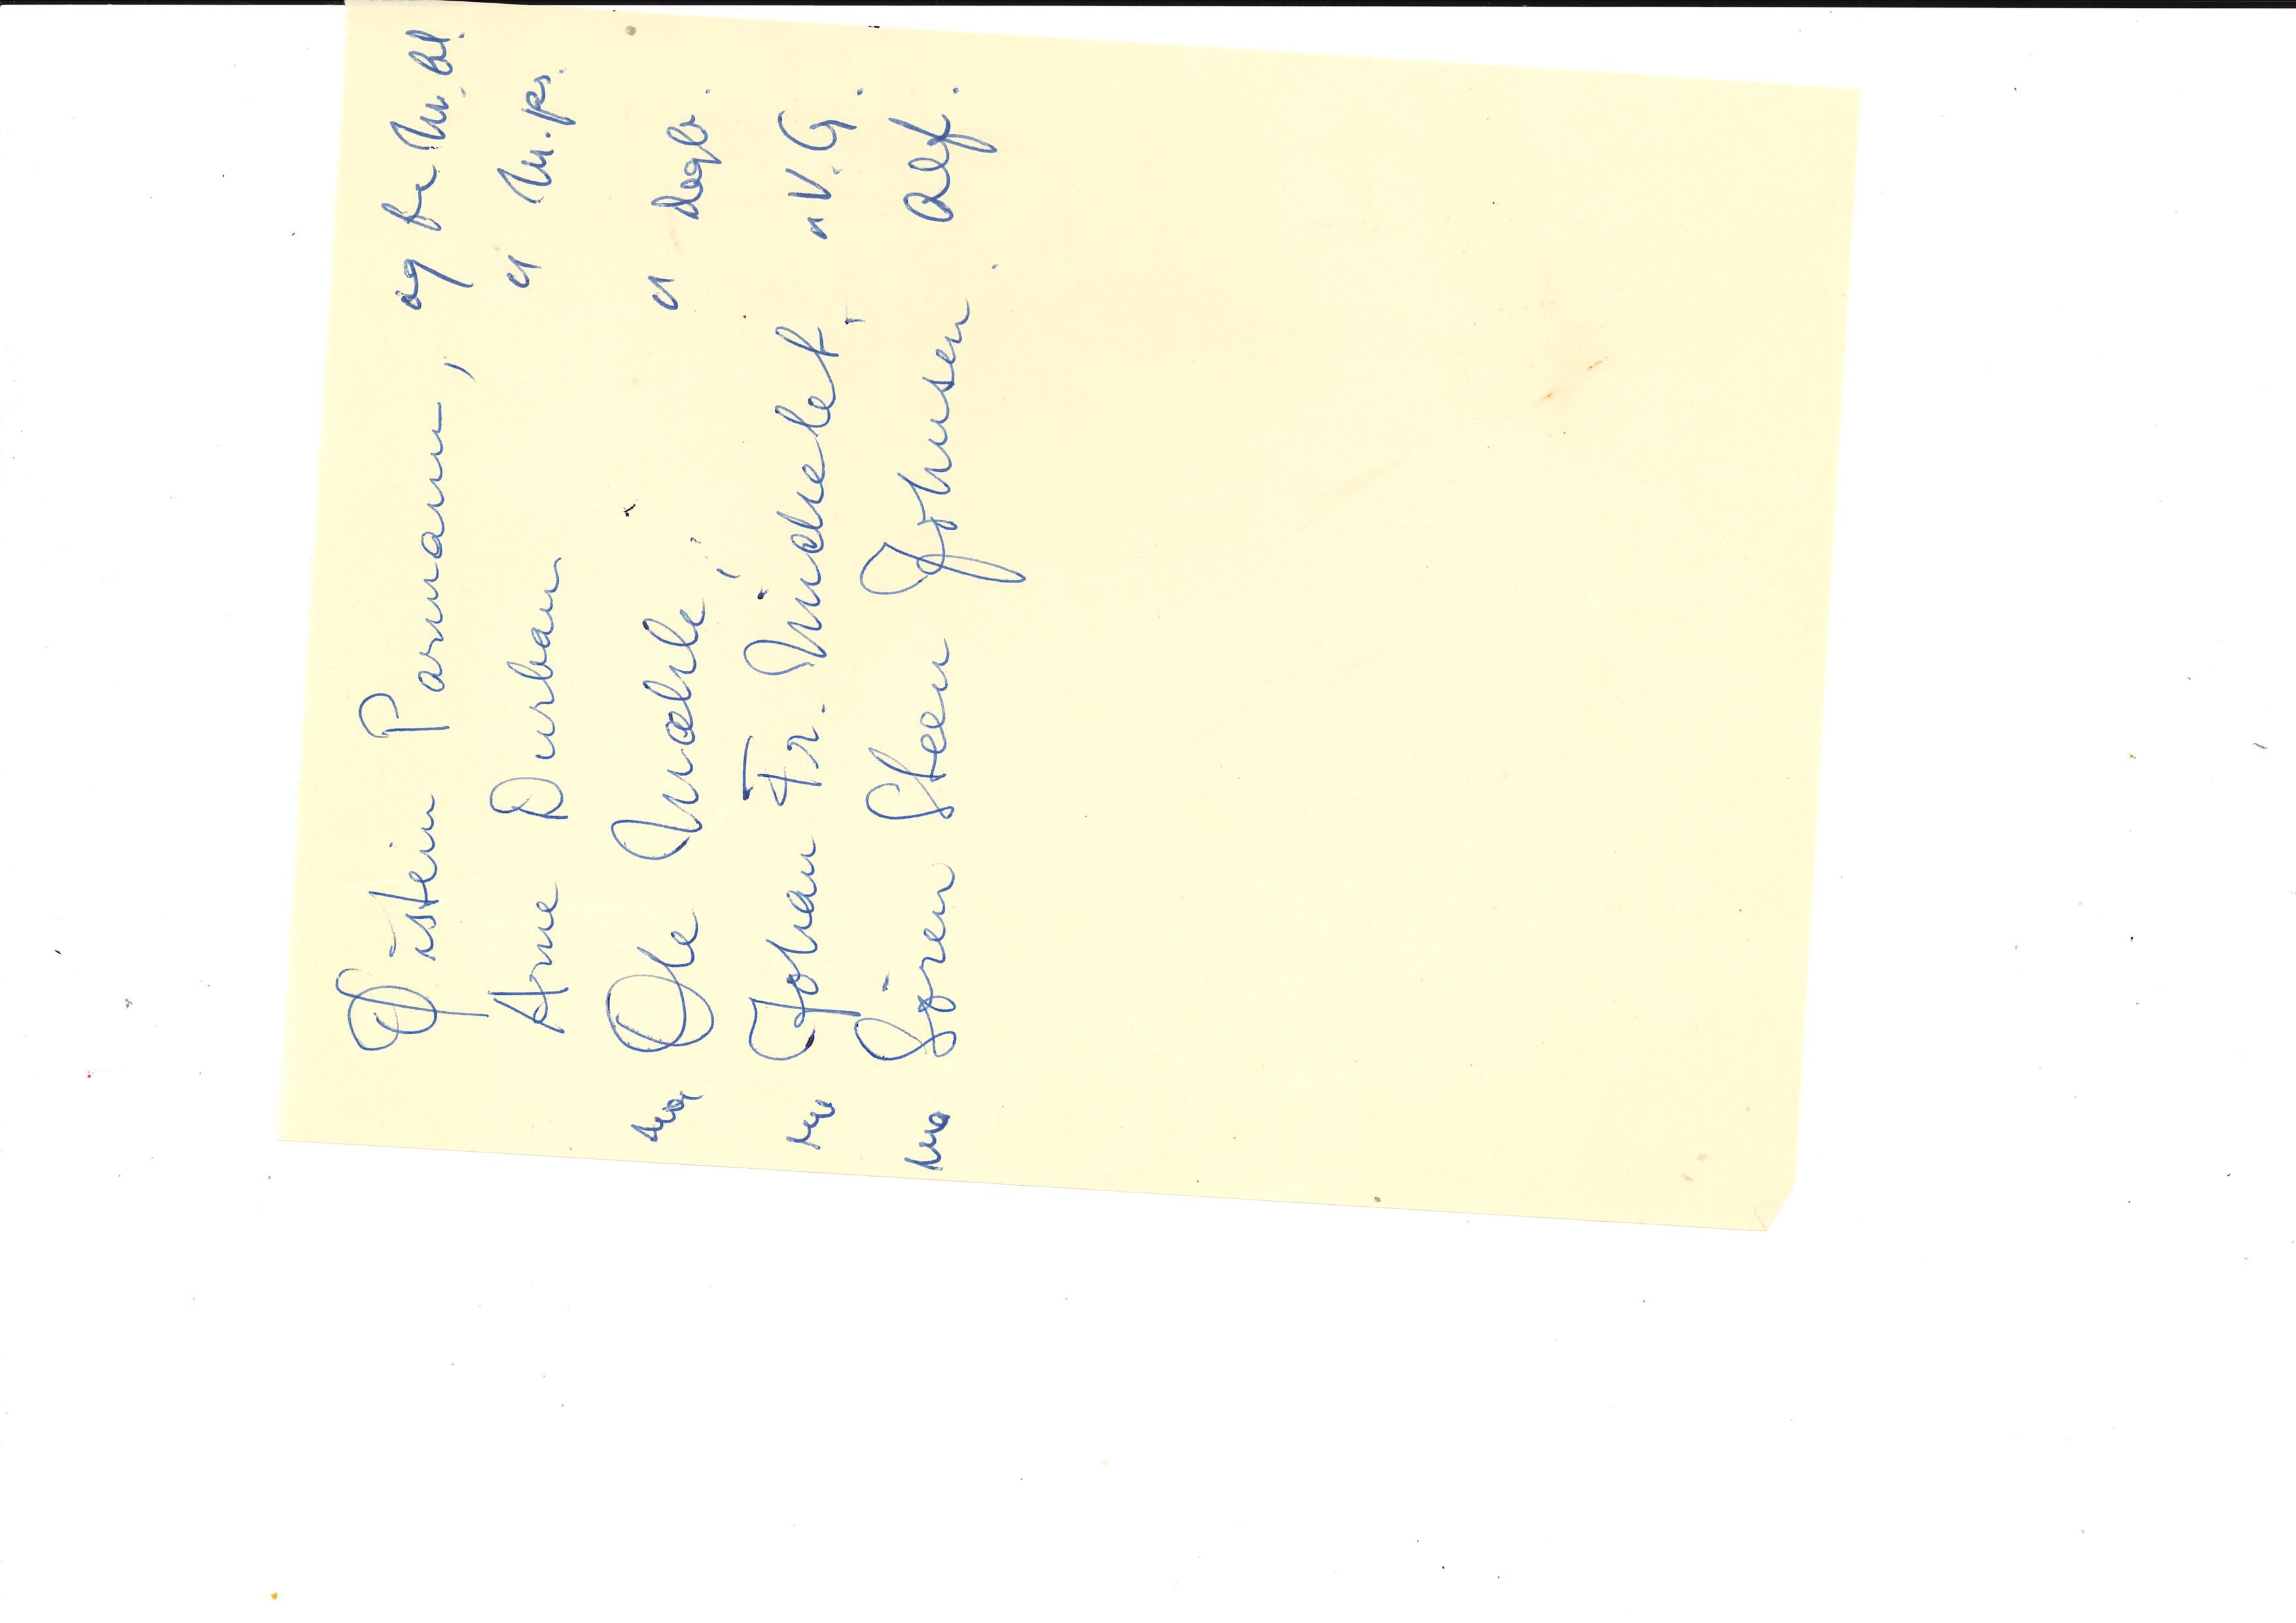 Øistein Parmann, og fr M.Bl.
Arne Durban " M.ps.
Ole Mæhle, " Dagb.
Johan Fr. Michelet " V.G.
Sören Steen Johnsen. Aft.